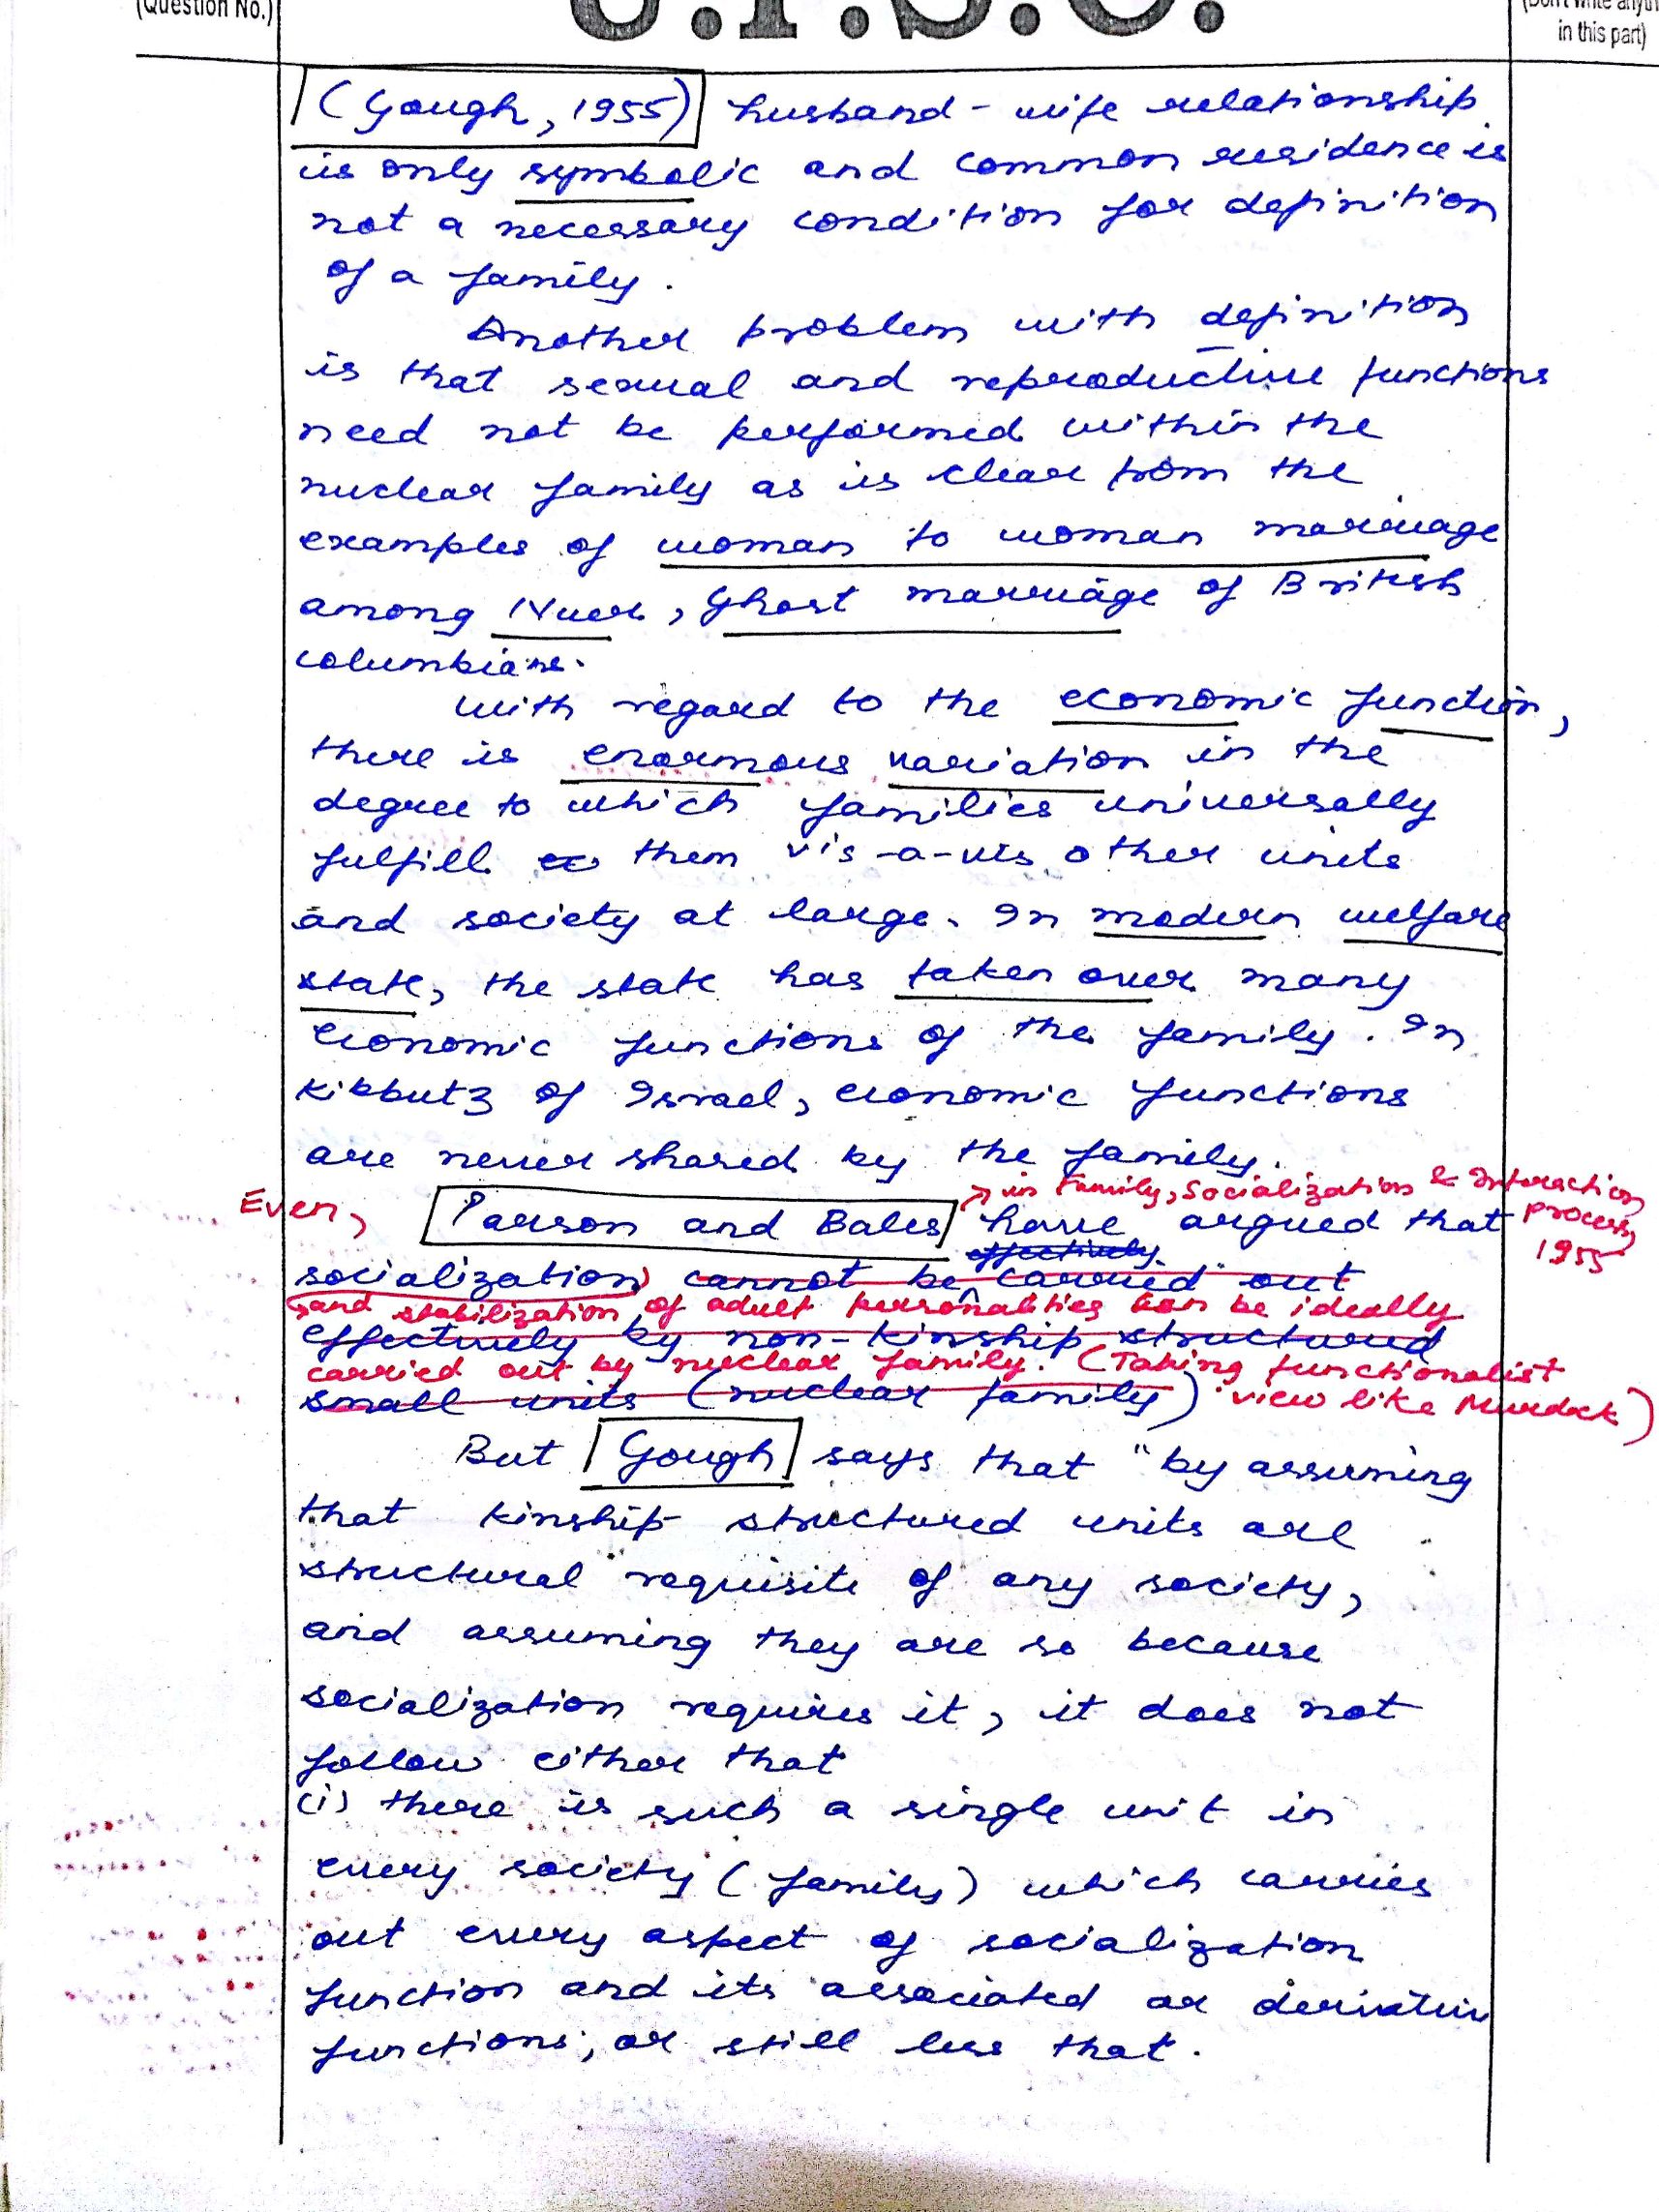 (Question No.)
U.P.S.C.
(Don't write anyth
in this part)
(Gough, 1955) husband - wife relationship
is only symbolic and common residence is
not a necessary condition for definition
of a family.
Another problem with definition
is that sexual and reproductive functions
need not be performed within the
nuclear family as is clear from the
examples of woman to woman marriage
among Nuer, Ghost marriage of British
columbians.
With regard to the economic function,
there is enormous variation in the
degree to which families universally
fulfill them vis-a-vis other units
and society at large. In modern welfare
state, the state has taken over many
economic functions of the family. In
Kibbutz of Israel, economic functions
are never shared by the family.
→ in Family, Socialization & Interaction
process,
1955
Even, Parson and Bales have argued that
effectively
socialization cannot be carried out
and stabilization of adult personalities can be ideally
effectively by non-kinship structured
carried out by nuclear family. (Taking functionalist
small units (nuclear family) view like Murdock)
But Gough says that "by assuming
that kinship structured units are
structural requisite of any society,
and assuming they are so because
socialization requires it, it does not
follow either that
(i) there is such a single unit in
every society (family) which carries
out every aspect of socialization
function and its associated or derivative
functions; or still less that.